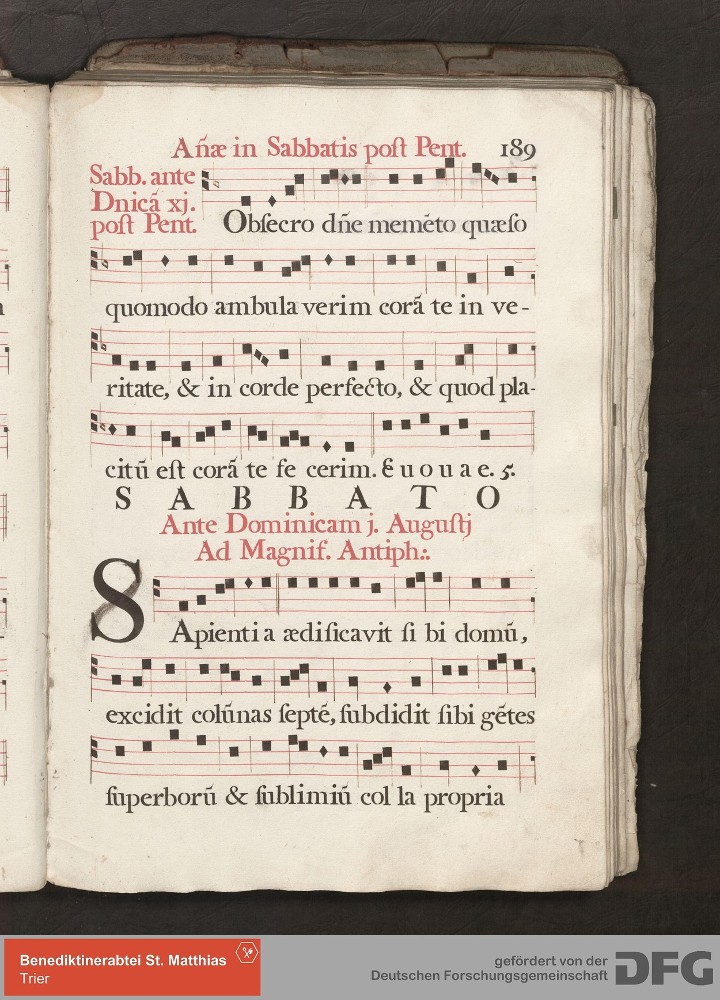 Añæ in Sabbatis poſt Pent. 189
Sabb. ante
Dnicã xj.
poſt Pent.
Obſecro dñe memẽto quæſo
quomodo ambula verim corã te in ve-
ritate, & in corde perfecto, & quod pla-
citũ eſt corã te fe cerim. E u o u a e. 5.
S A B B A T O
Ante Dominicam j. Auguſtj
Ad Magnif. Antiph:.
SApienti a ædificavit ſi bi domũ,
excidit colũnas ſeptẽ, ſubdidit ſibi gẽtes
ſuperborũ & ſublimiũ col la propria
Benediktinerabtei St. Matthias
Trier
gefördert von der
Deutschen Forschungsgemeinschaft
DFG